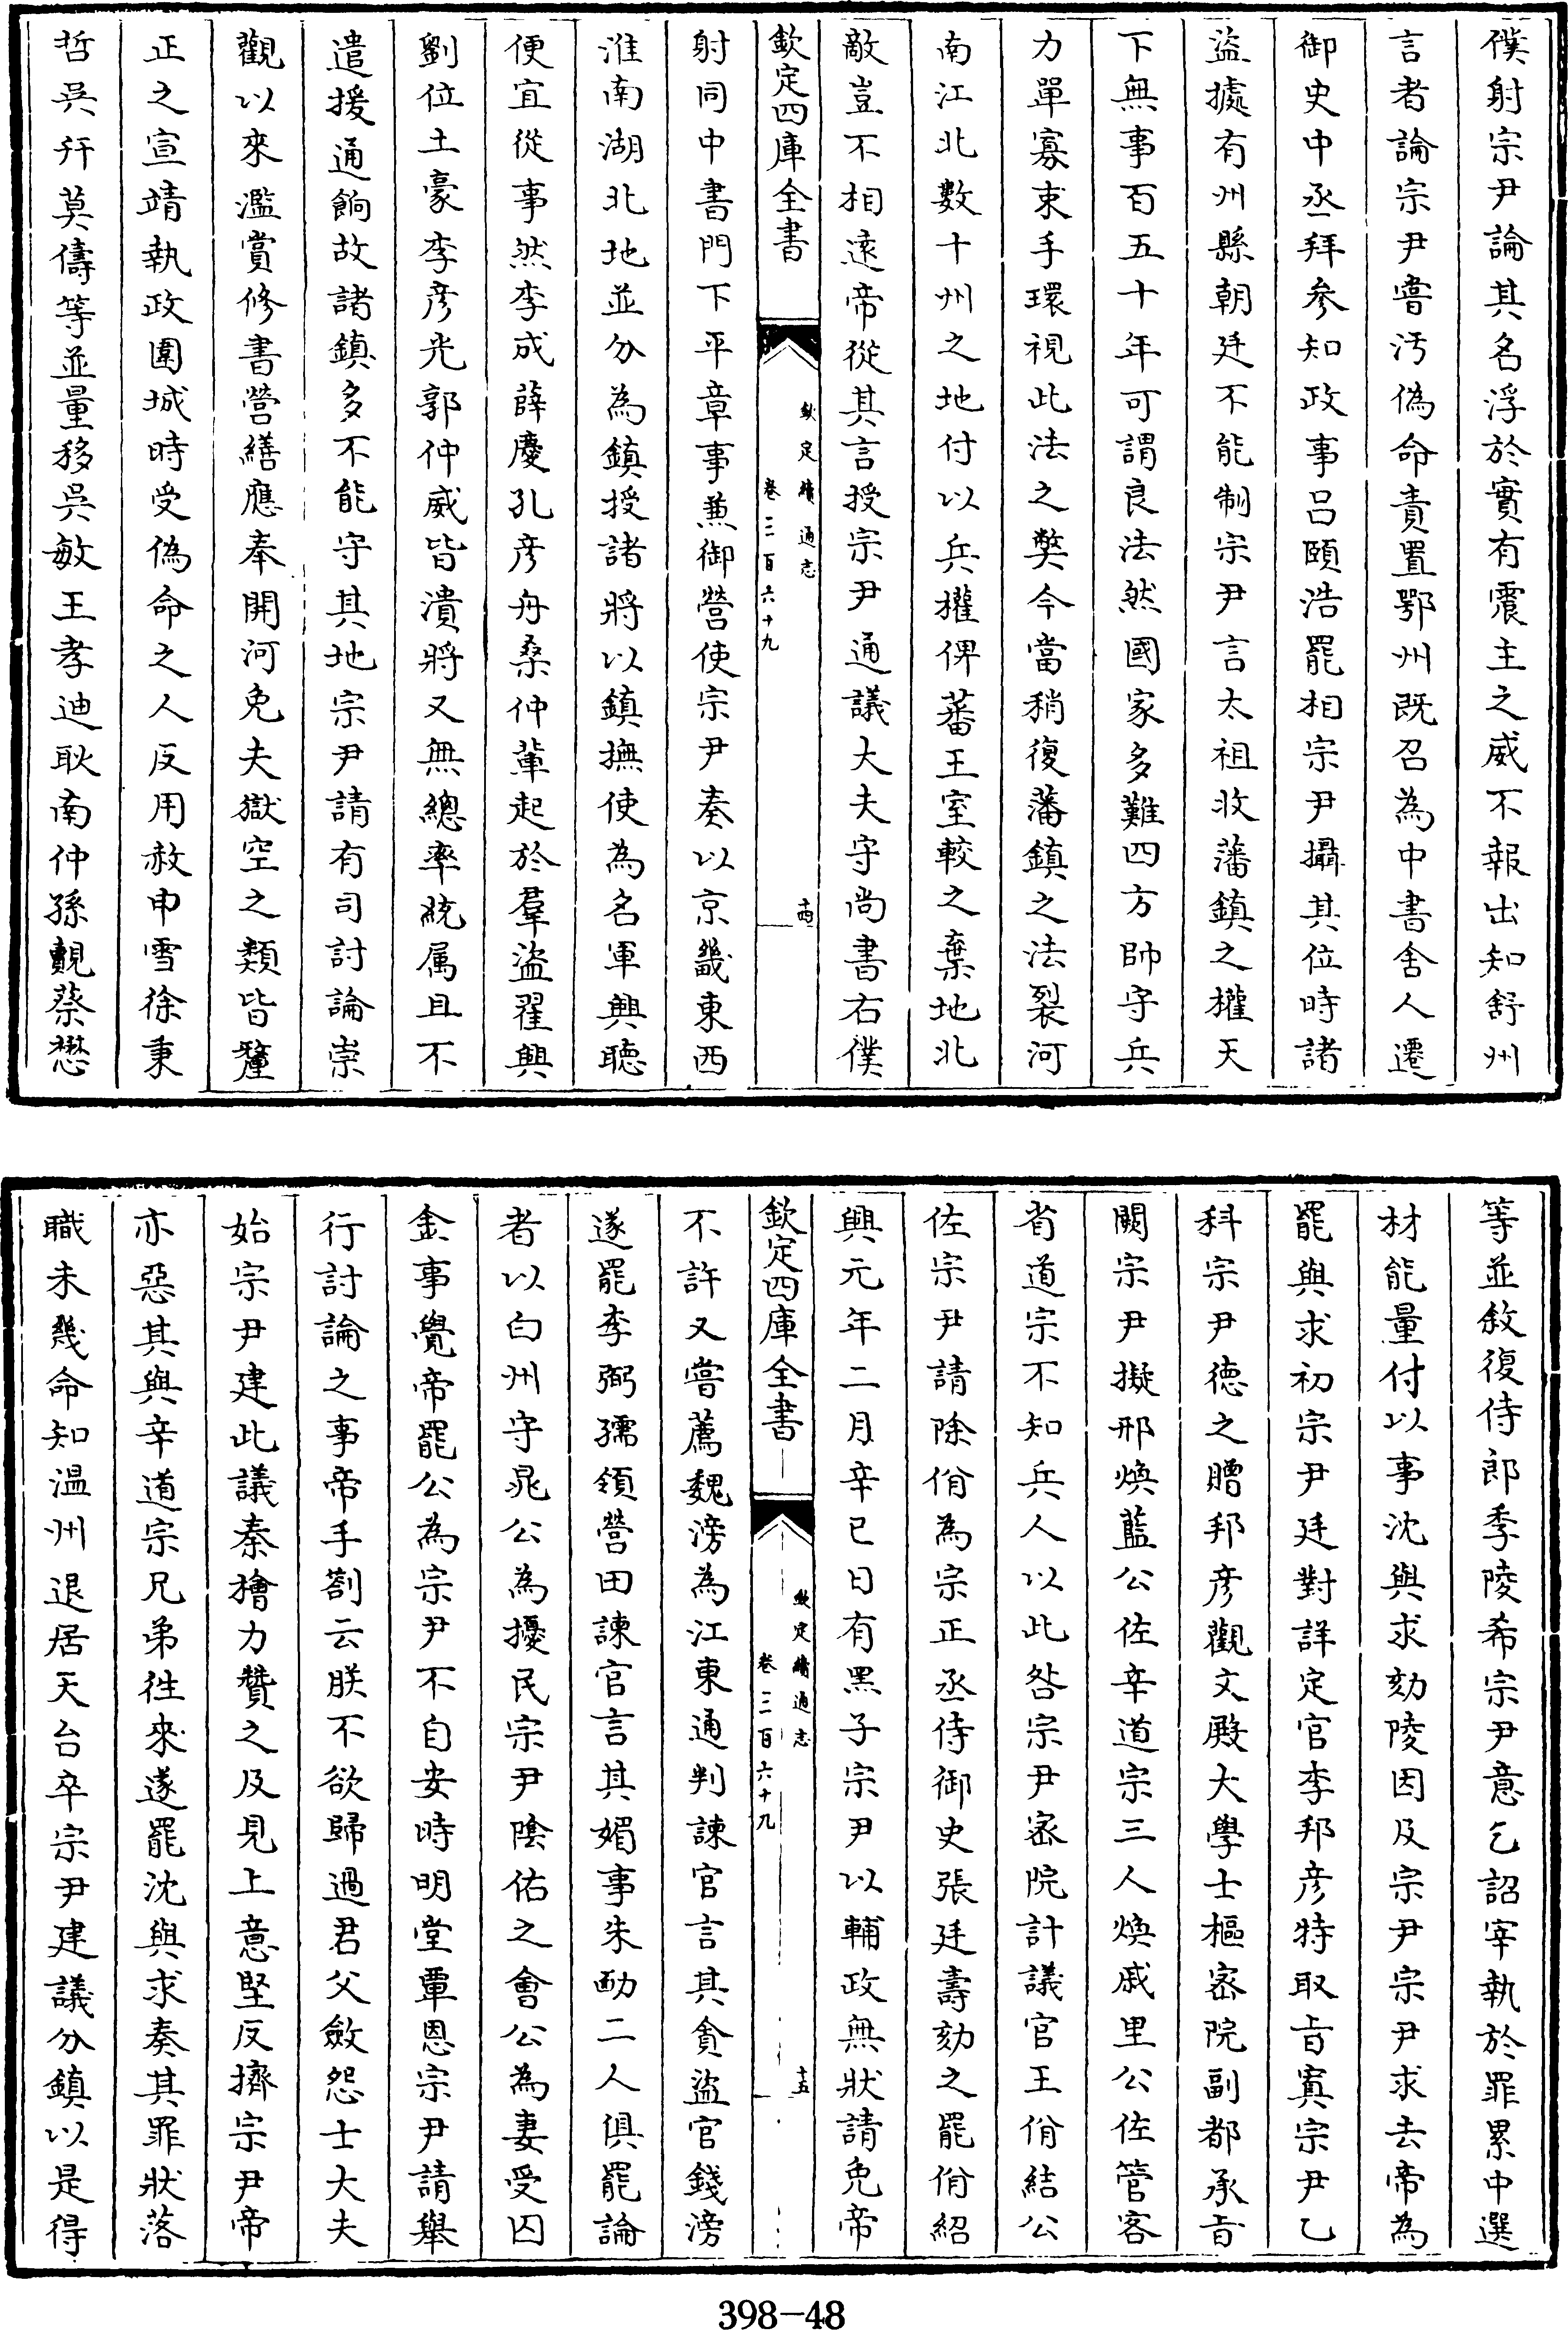 僕射宗尹論其名浮於實有震主之威不報出知舒州
言者論宗尹嘗汚偽命責置鄂州既召為中書舍人遷
御史中丞拜參知政事呂頤浩罷相宗尹攝其位時諸
盜據有州縣朝廷不能制宗尹言太祖收藩鎮之權天
下無事百五十年可謂良法然國家多難四方帥守兵
力單寡束手環視此法之弊今當稍復藩鎮之法裂河
南江北數十州之地付以兵權俾蕃王室較之棄地北
敵豈不相遠帝從其言授宗尹通議大夫守尚書右僕
欽定四庫全書
欽定續通志
卷三百六十九
十四
射同中書門下平章事兼御營使宗尹奏以京畿東西
淮南湖北地並分為鎮授諸將以鎮撫使為名軍興聽
便宜從事然李成薛慶孔彥舟桑仲輩起於羣盜翟興
劉位土豪李彥光郭仲威皆潰將又無總率統属且不
遣援通餉故諸鎮多不能守其地宗尹請有司討論崇
觀以來濫賞修書營繕應奉開河免夫獄空之類皆釐
正之宣靖執政圍城時受偽命之人反用赦申雪徐秉
哲吳幵莫儔等並量移吳敏王孝迪耿南仲孫覿蔡懋
等並敘復侍郎季陵希宗尹意乞詔宰執於罪累中選
材能量付以事沈與求劾陵因及宗尹宗尹求去帝為
罷與求初宗尹廷對詳定官李邦彥特取旨寘宗尹乙
科宗尹德之贈邦彥觀文殿大學士樞密院副都承旨
闕宗尹擬邢煥藍公佐辛道宗三人煥戚里公佐管客
省道宗不知兵人以此咎宗尹密院計議官王佾結公
佐宗尹請除佾為宗正丞侍御史張延壽劾之罷佾紹
興元年二月辛巳日有黑子宗尹以輔政無狀請免帝
欽定四庫全書
欽定續通志
卷三百六十九
十五
不許又嘗薦魏滂為江東通判諫官言其貪盜官錢滂
遂罷李弼孺領營田諫官言其媚事朱勔二人俱罷論
者以白州守晁公為擾民宗尹陰佑之會公為妻受囚
金事覺帝罷公為宗尹不自安時明堂覃恩宗尹請舉
行討論之事帝手劄云朕不欲歸過君父斂怨士大夫
始宗尹建此議秦檜力贊之及見上意堅反擠宗尹帝
亦惡其與辛道宗兄弟往來遂罷沈與求奏其罪狀落
職未幾命知温州退居天台卒宗尹建議分鎮以是得
398-48